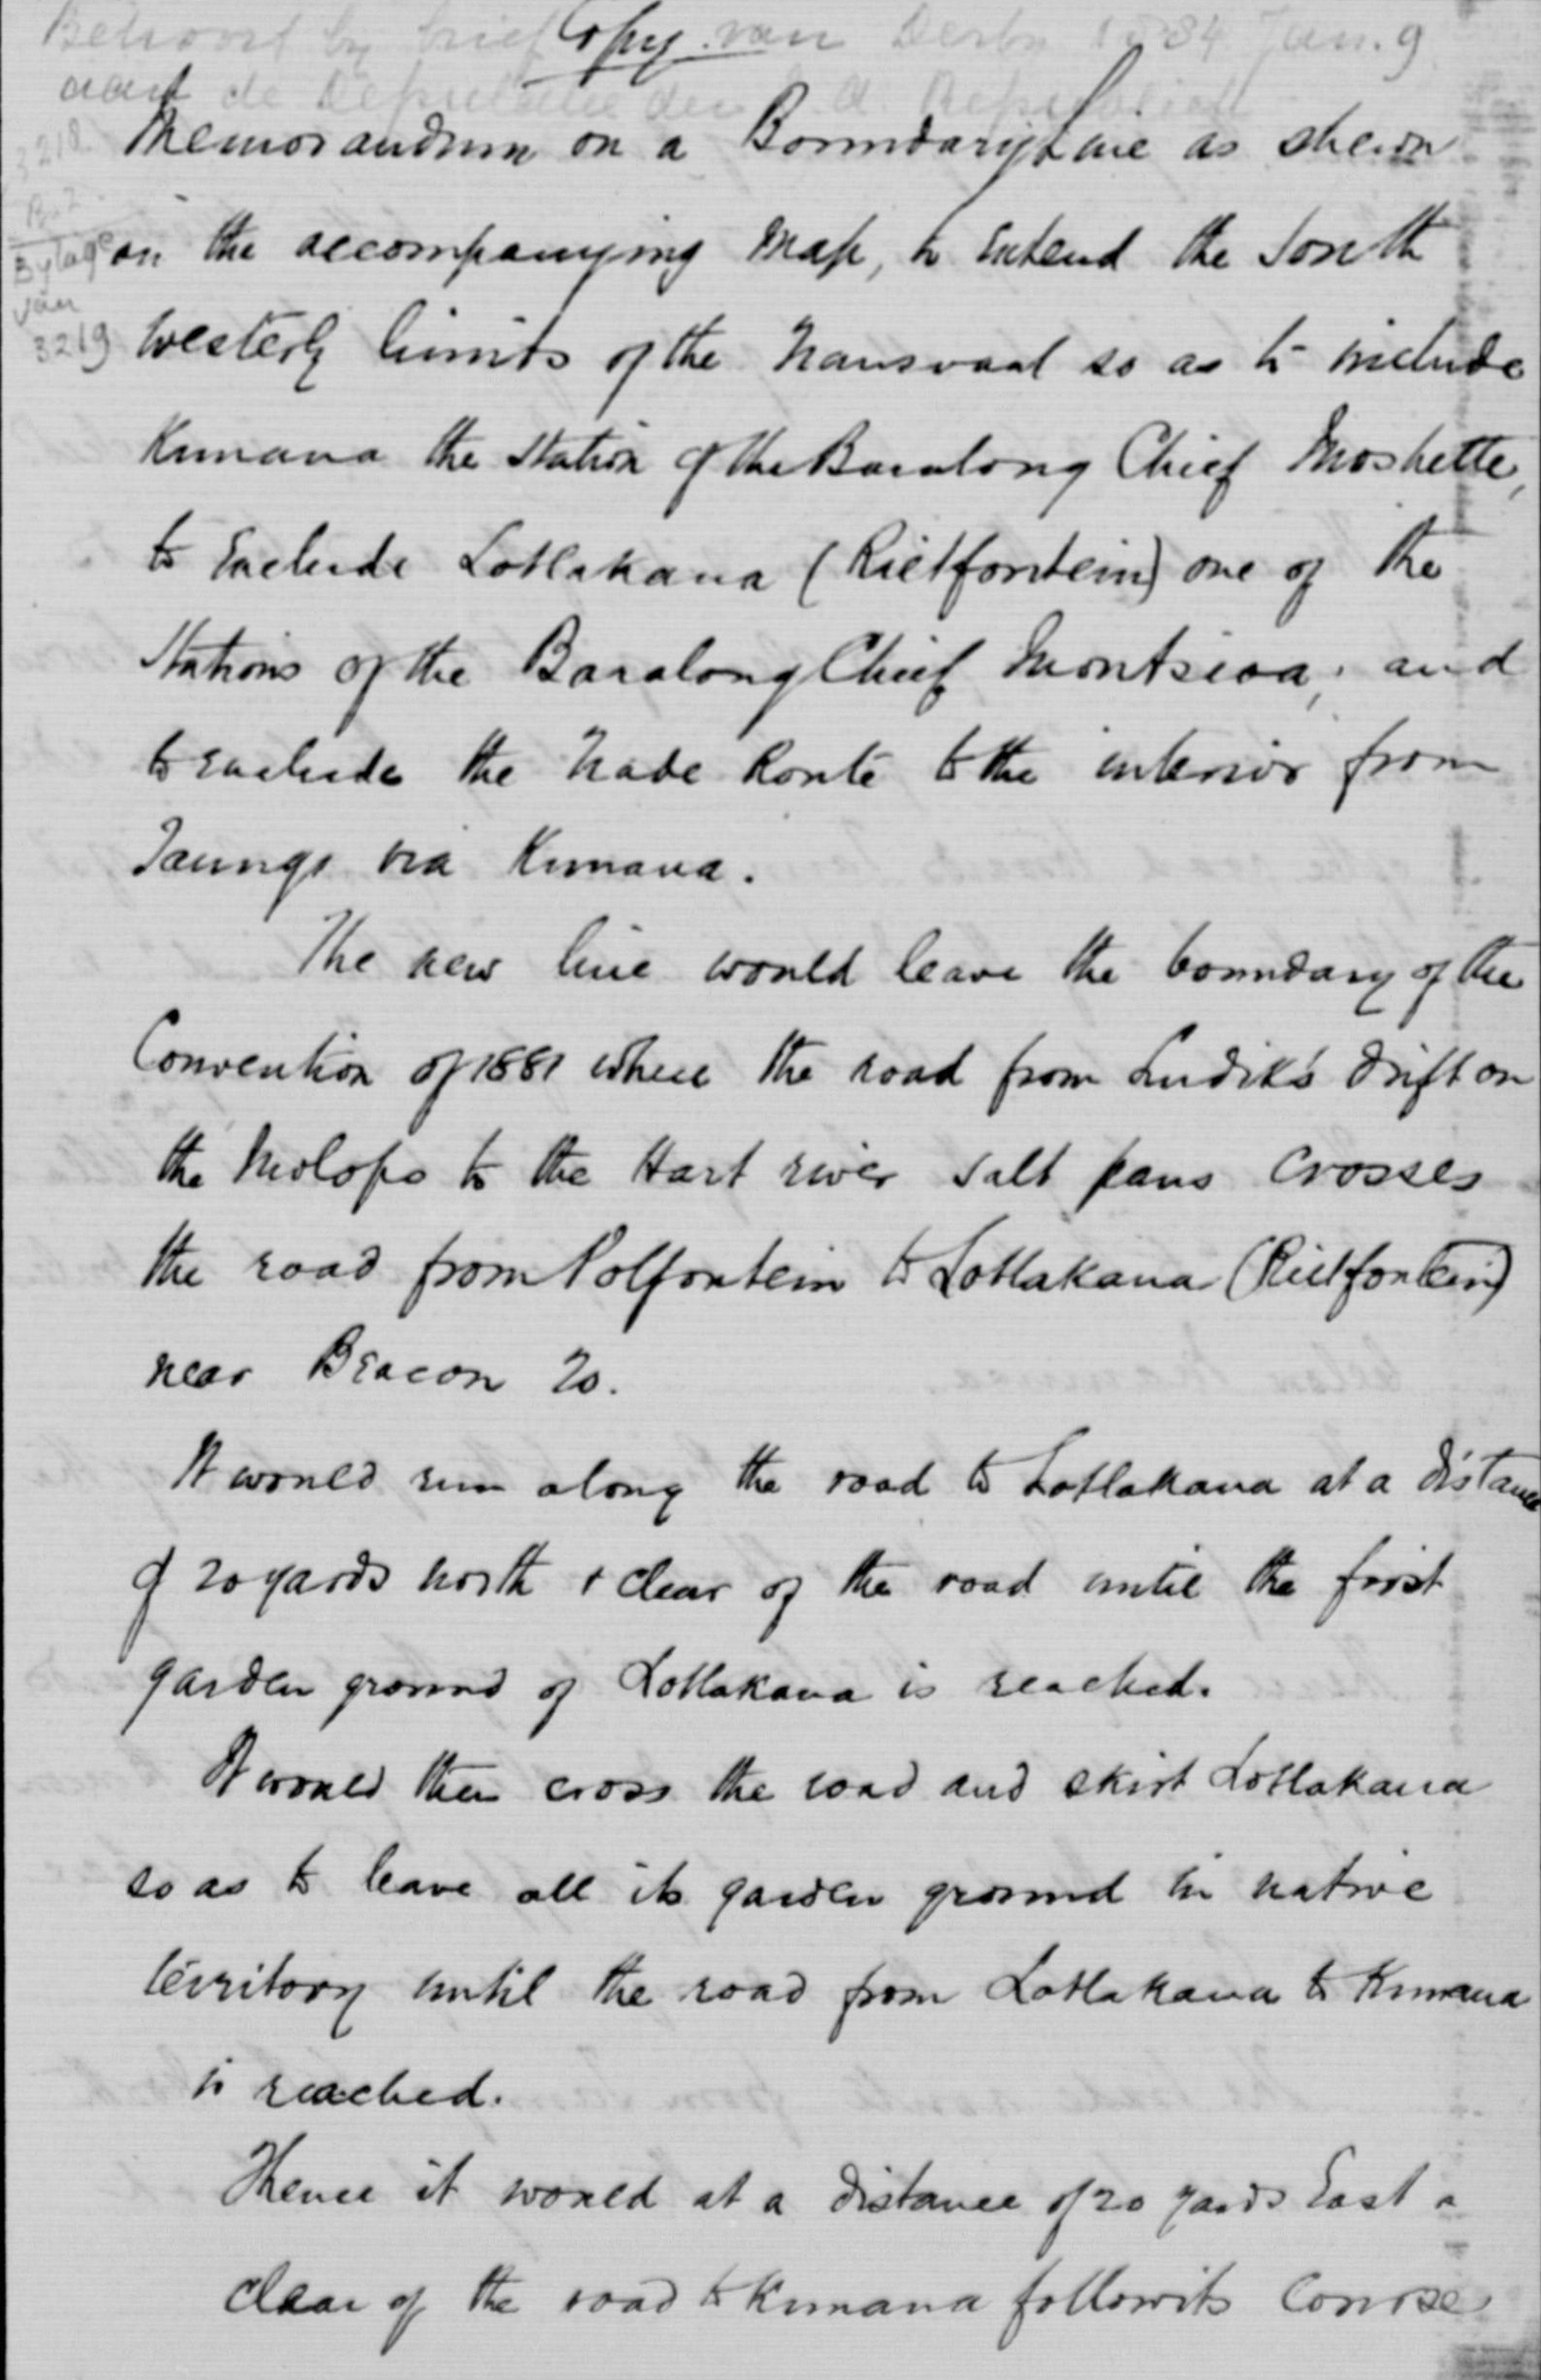 Behoort by brief Copy van Derby 1884 Jan. 9
aan de Deputatie
3218
Memorandum on a Boundary Line as shewn
on the accompanying Map, to extend the South
Bylage
van
3219
Westerly limits of the Transvaal so as to include
Kunana the Station of the Baralong Chief Moshette,
to Exclude Lotlakana (Rietfontein) one of the
Stations of the Baralong Chief Montsioa; and
to exclude the Trade Route to the interior from
Taungs via Kunana.
The new line would leave the boundary of the
Convention of 1881 where the road from Ludik's drift on
the Molopo to the Hart river Salt pans Crosses
the road from Polfontein to Lotlakana (Rietfontein)
near Beacon 20.
It would run along the road to Lotlakana at a distance
of 20 yards north & clear of the road until the first
garden ground of Lotlakana is reached.
It would then cross the road and skirt Lotlakana
so as to leave all its garden ground in native
territory until the road from Lotlakana to Kunana
is reached.
Thence it would at a distance of 20 yards East &
clear of the road to Kunana follow its Course